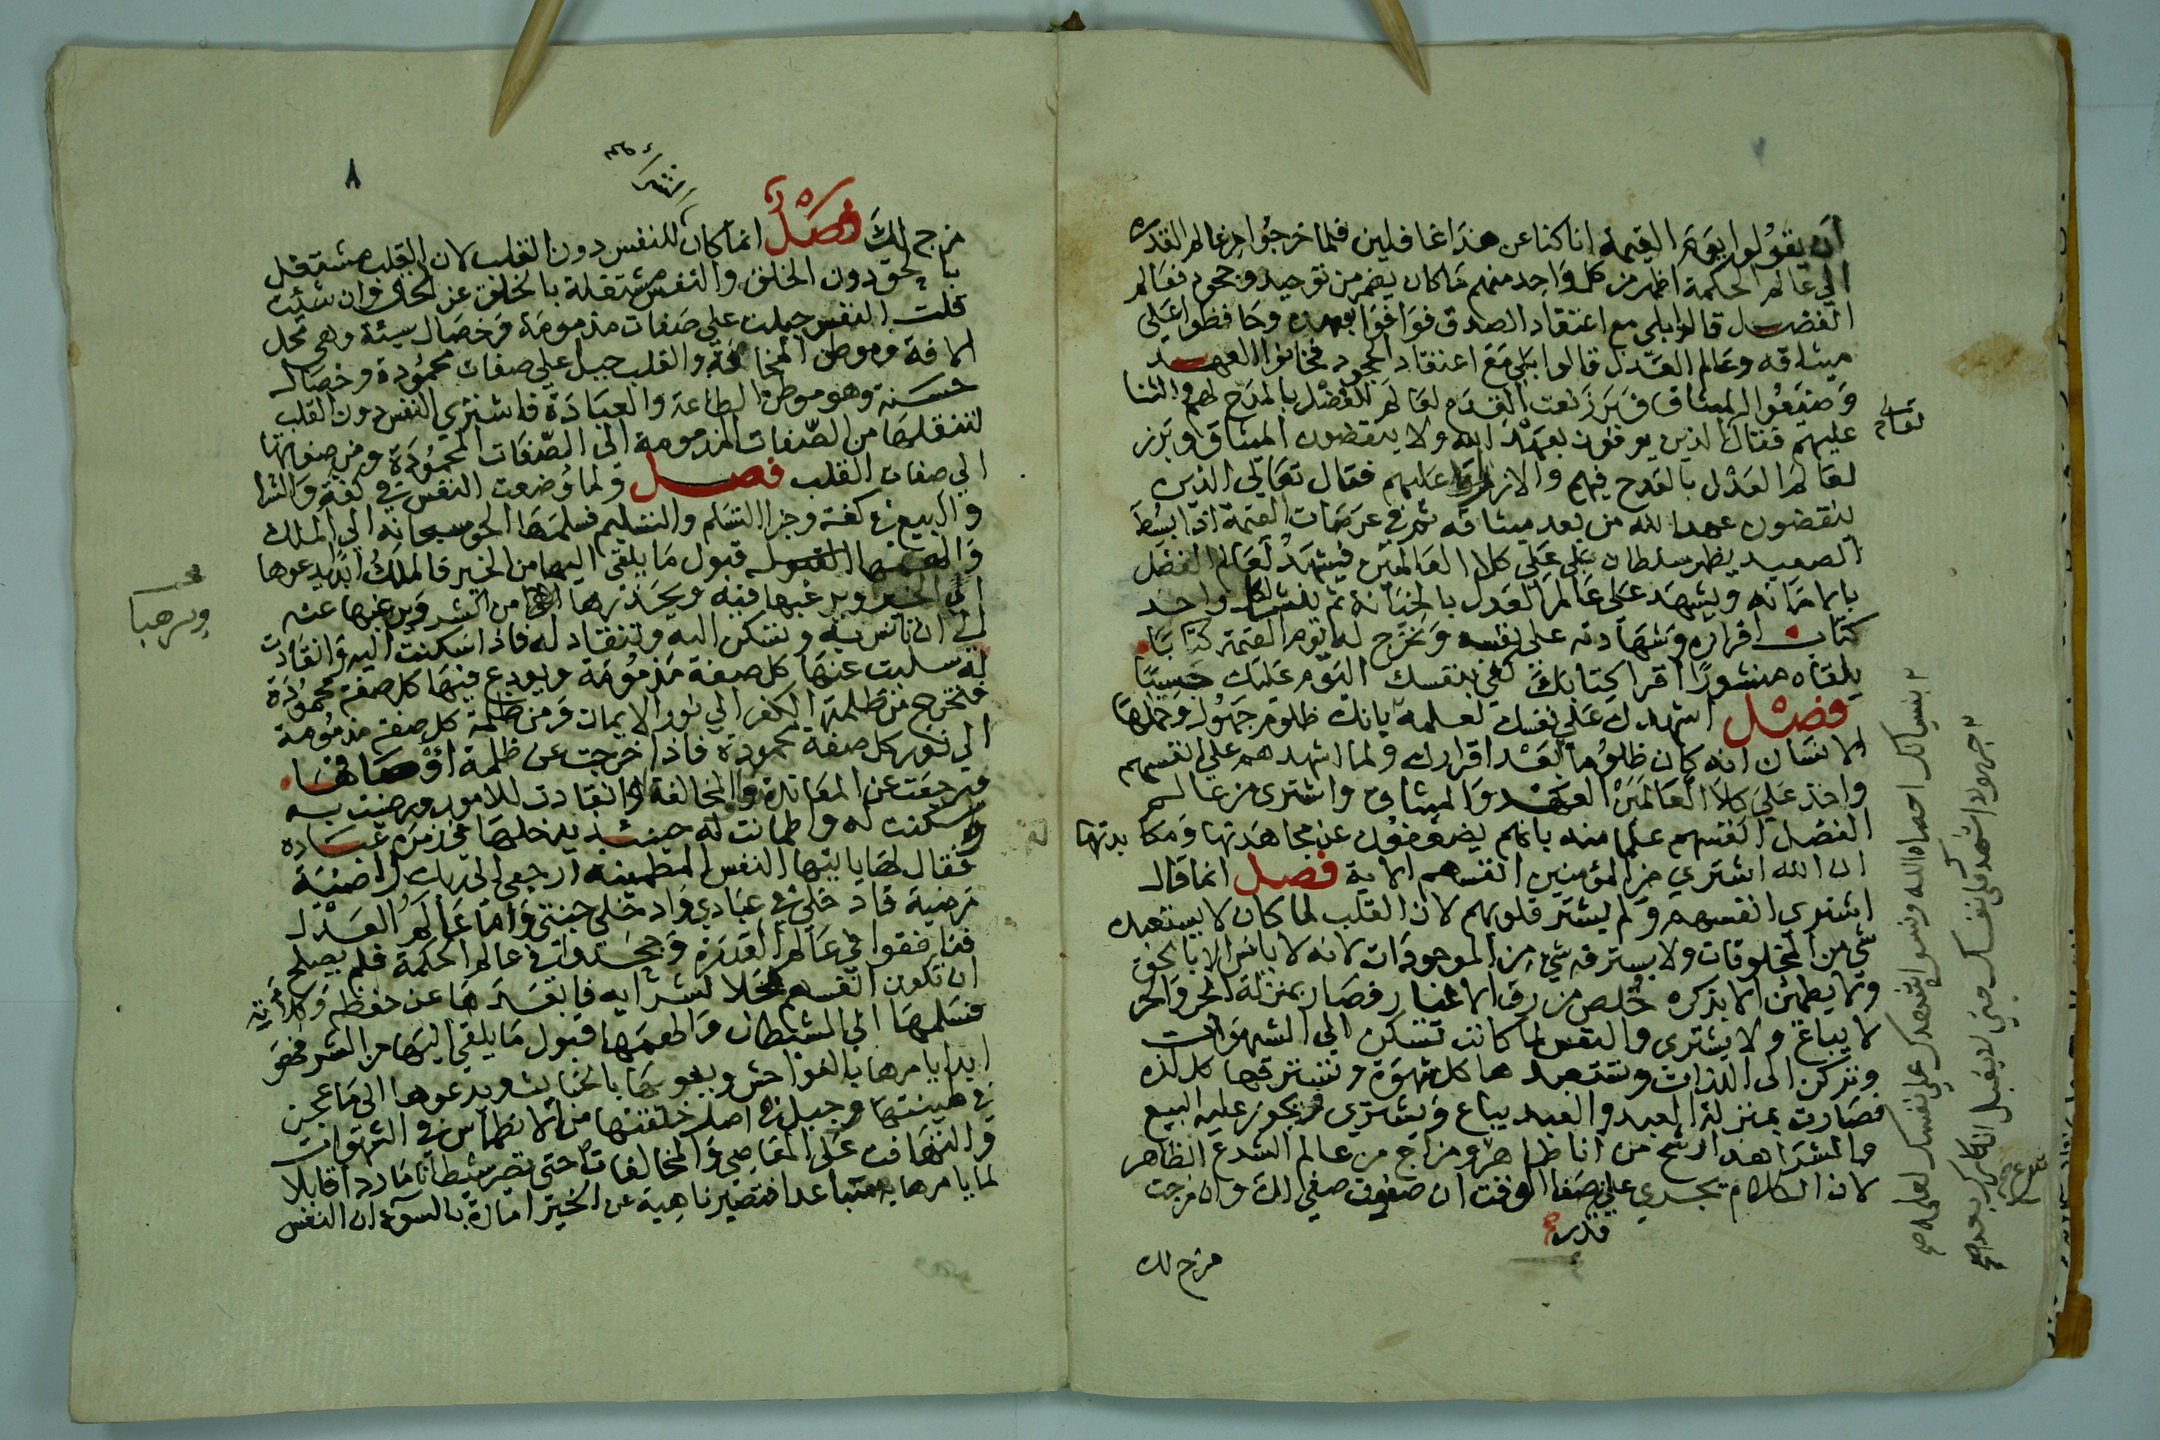 ان يقولوا يوم القيمة انا كنا عن هذا غافلين فلما خرجوا من عالم القدره
الي عالم الحكمة اظهر من كل واحد منهم ما كان يضمر من توحيد وجحود فعالم
الفضل قالوا بلى مع اعتقاد الصدق فوافوا بعهده وحافظوا على
ميثاقه وعالم العدل قالوا بلى مع اعتقاد الجحود فخانوا العهد
وضيعوا الميثاق فبرز نعت القدم لعالم الفضل بالمدح لهم والثنا
لعالم
عليهم فقال الذين يوفون بعهد الله ولا ينقضون الميثاق وبرز
لعالم العدل بالقدح فيهم والازرا عليهم فقال تعالى الذين
ينقضون عهد الله من بعد ميثاقه ثم في عرصات القيمة اذا بسط
الصعيد يظهر سلطان بلى على كلا العالمين فيشهد لعالم الفضل
بالامانه ويشهد على عالم العدل بالخيانة ثم ينشر لكل واحد
كتاب اقراره وشهادته على نفسه ونخرج له يوم القيمة كتابا
يلقاه منشورا اقرا كتابك كفى بنفسك اليوم عليك حسيبا
فصل اشهدك على نفسك لعلمه بانك ظلوم جهول وحملها
الانسان انه كان ظلوما بعد اقرارك ولما اشهدهم على انفسهم
واخذ على كلا العالمين العهد والميثاق واشترى من عالم
الفضل انفسهم علما منه بانهم يضعفون عن مجاهدتها ومكابدتها
ان الله اشترى من المؤمنين انفسهم الاية فصل انما قال
اشترى انفسهم ولم يشتر قلوبهم لان القلب لما كان لا يستعبده
شي من المخلوقات ولا يسترقه شي من الموجودات لانه لا يانس الا بالحق
ولا يطمئن الا بذكره خلص من رق الاغيار فصار بمنزلة الحر والحر
لا يباع ولا يشترى والنفس لما كانت تسكن الي الشهوات
وتركن الى اللذات وتستعبدها كل شهوة وتسترقها كل لذه
فصارت بمنزلة العبد والعبد يباع ويشترى ويجوز عليه البيع
والشرا هذا رشح من انا ظاهر ومزاج من عالم الشرع الظاهر
لان الكلام يجري على صفا الوقت ان صفوت صفي لك وان مزجت
مزج لك
٢ بنسيانك احصاه الله ونسوه اشهدك على نفسك لعلمه صح
٨
مزج لك فصل انما كان للنفس دون القلب لان القلب مشتغل
بالحق دون الخلق والنفس مشتغلة بالخلق عن الحق وان شئت
قلت النفس جبلت على صفات مذمومة وخصال سيئة وهي محل
الافة وموطن المخالفة والقلب جبل على صفات محمودة وخصال
حسنة وهو موطن الطاعة والعبادة فاشترى النفس دون القلب
لتنقلها من الصفات المذمومة الى الصفات المحمودة ومن صفاتها
الي صفات القلب فصل ولما وضعت النفس في كفة والشرا
والبيع في كفة وجرا التسلم والتسليم فسلمها الحق سبحانه الى الملك
والهمها قبول ما يلقى اليها من الخير فالملك ابدا يدعوها
الى الخير ويرغبها فيه ويحذرها من الشر ويرغبها عنه
ويرهبا
الي ان تانس به وتسكن اليه وتنقاد له فاذا سكنت اليه وانقادت
له سلبت عنها كل صفة مذمومة ويودع فيها كل صفة محمودة
فتخرج من ظلمة الكفر الي نور الايمان ومن ظلمة كل صفة مذمومة
الي نور كل صفة محمودة فاذا خرجت عن ظلمة اوصافها
ورجعت عن المعاندة والمخالفة وانقادت للامور ورضيت به
وسكنت له واطمانت له حينئذ يدخلها في زمرة عباده
فقال لها يا ايتها النفس المطمينة ارجعي الى ربك راضية
مرضية فادخلي في عبادي وادخلي جنتي واما عالم العدل
فنافقوا في عالم القدرة وجحدوا في عالم الحكمة فلم يصلح
ان تكون انفسهم محلا لشرايه فابعدها عن حفظه وكلأته
فسلمها الي الشيطان والهمها قبول ما يلقي اليها من الشر فهو
ابدا يامرها بالفواحش ويغويها بالخبايث ويدعوها الى ما عجن
في هيئتها وجبل في اصل خلقتها من الانطماس في الشهوات
والتهافت على المعاصي والمخالفات حتى تصير شيطانا ماردا قابلا
لما يامرها به متباعدا فتصير ناهية عن الخير امارة بالسوء ان النفس